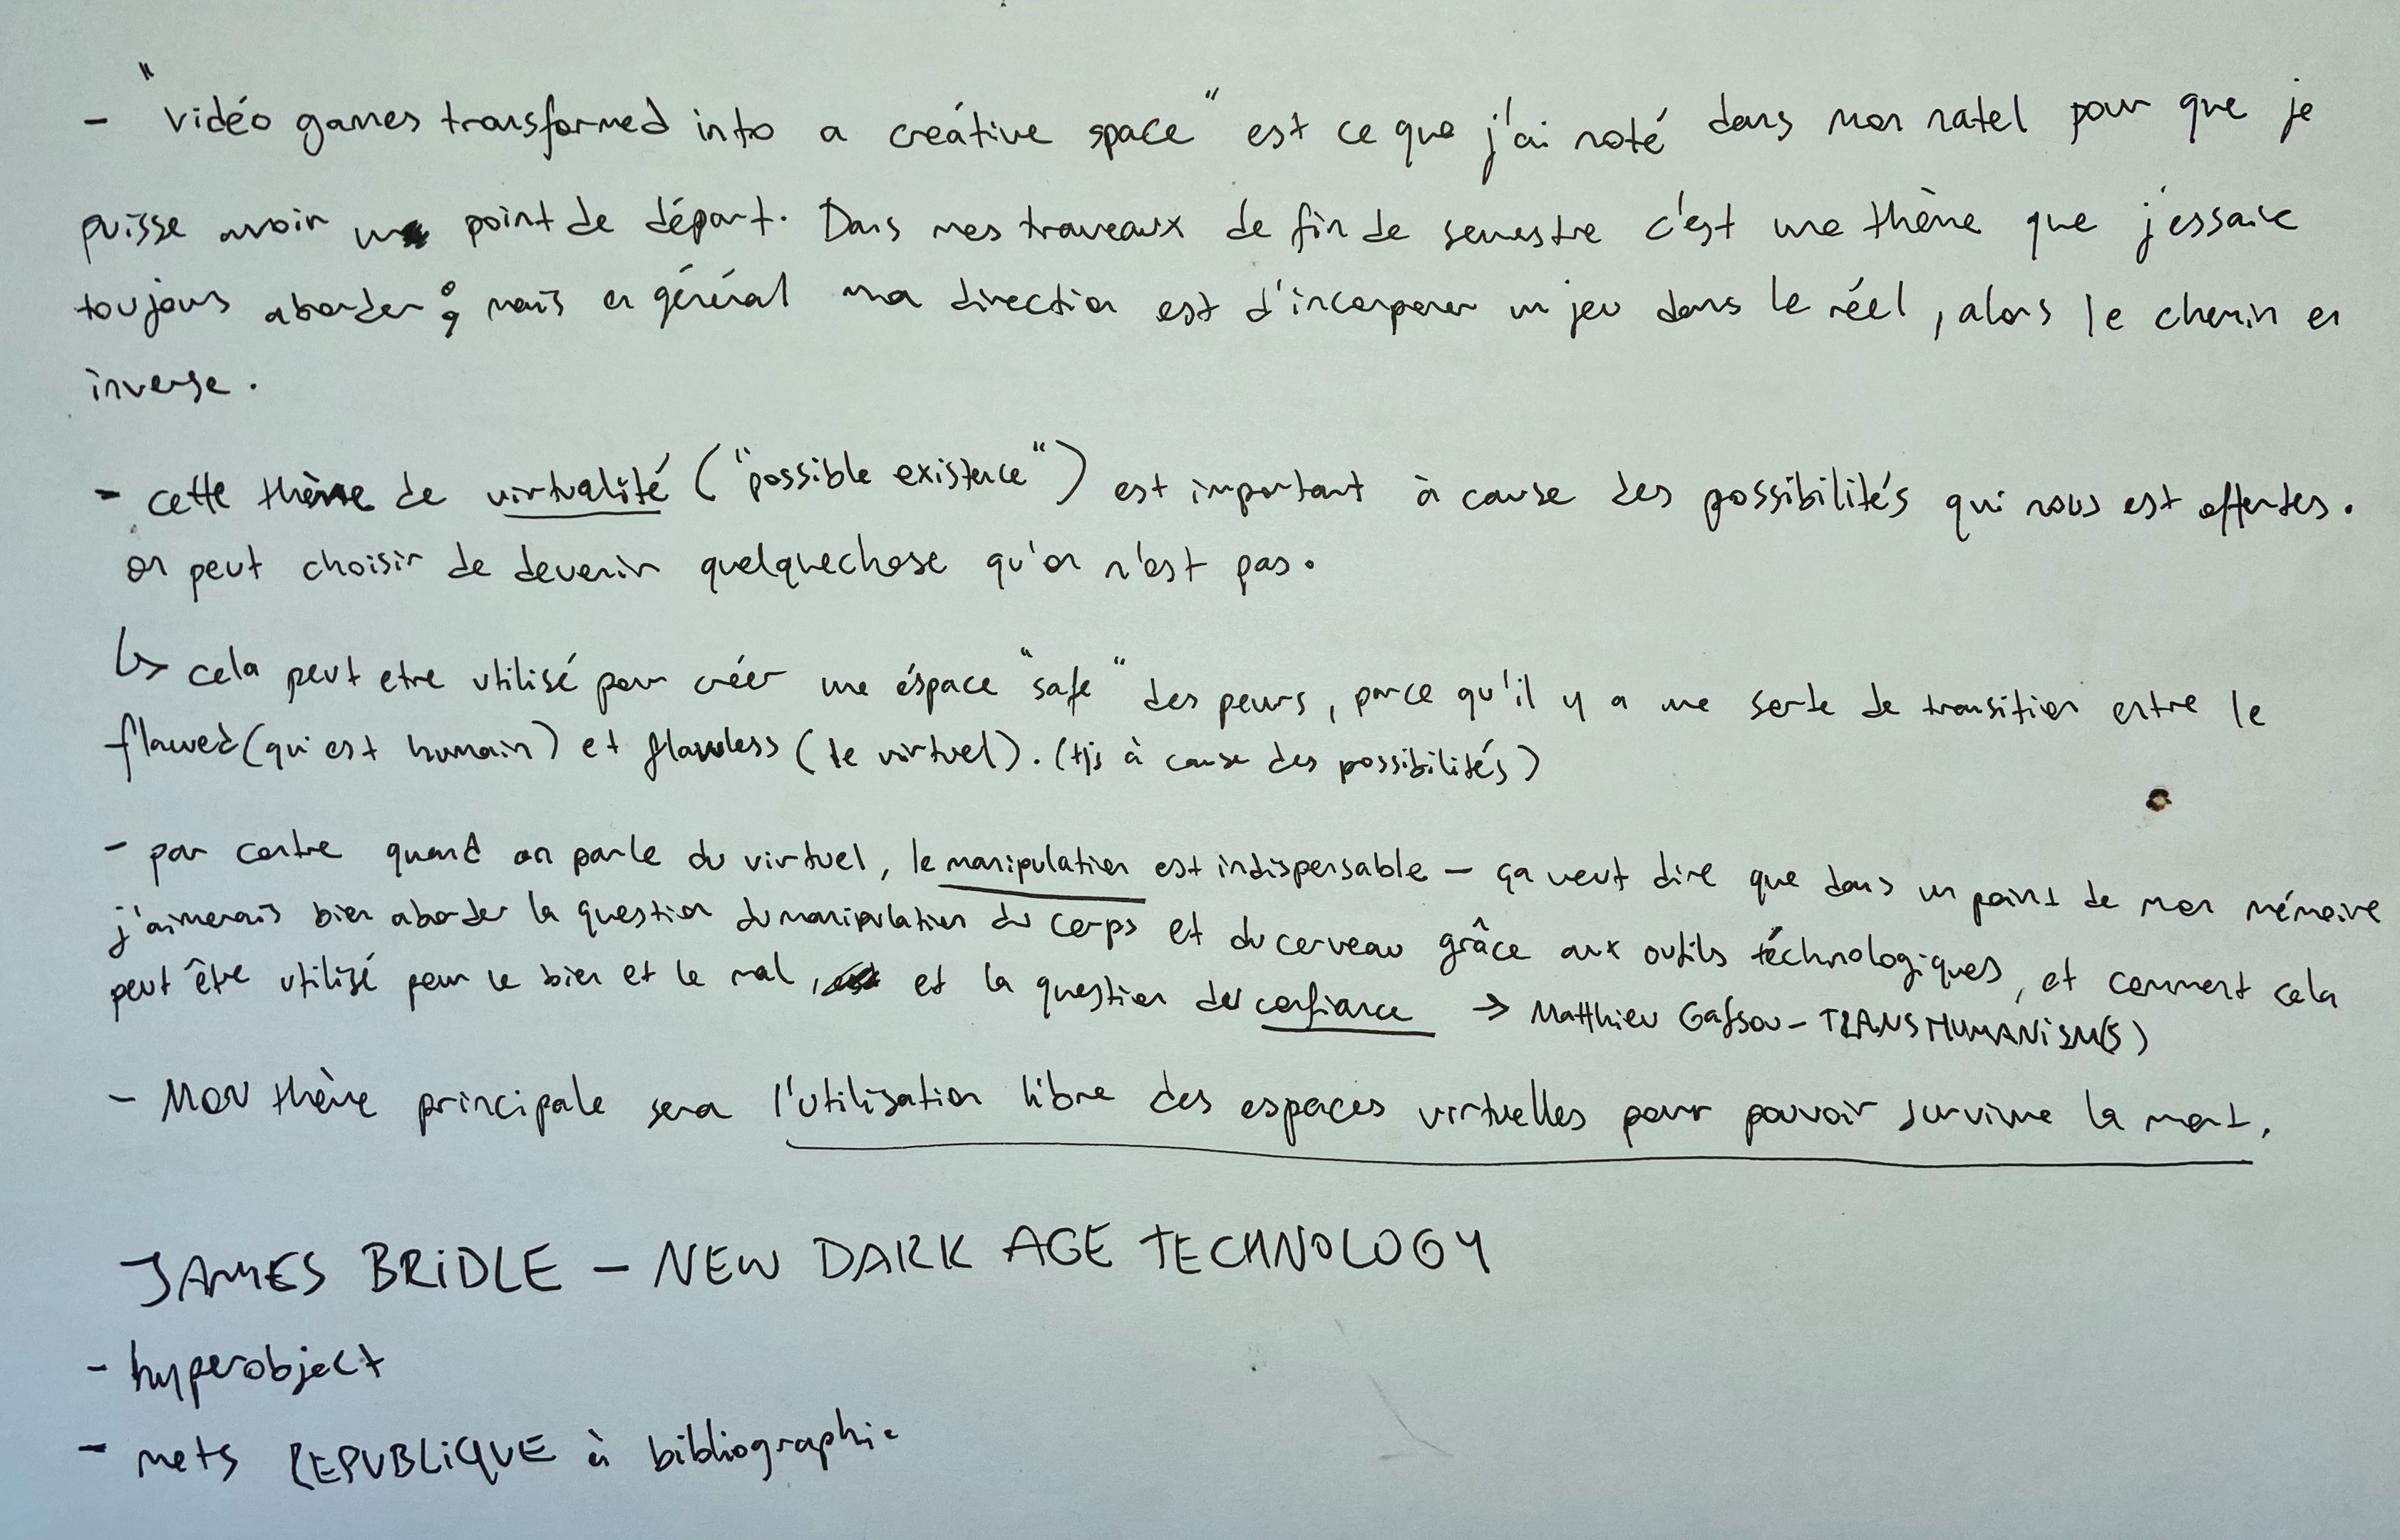 - "vidéo games transformed into a créative space" est ce que j'ai noté dans mon natel pour que je
puisse avoir un point de départ. Dans mes traveaux de fin de semestre c'est une thème que j'essaie
toujours aborder ; mais en général ma direction est d'incorporer un jeu dans le réel, alors le chemin en
inverse.
- cette thème de virtualité ("possible existence") est important à cause des possibilités qui nous est offertes.
on peut choisir de devenir quelquechose qu'on n'est pas.
↳ cela peut etre utilisé pour créer une éspace "safe" des peurs, parce qu'il y a une sorte de transition entre le
flawed (qui est humain) et flawless (le virtuel). (tjs à cause des possibilités)
- par contre quand on parle du virtuel, le manipulation est indispensable - ça veut dire que dans un point de mon mémoire
j'aimerais bien aborder la question du manipulation du corps et du cerveau grâce aux outils téchnologiques, et comment cela
peut être utilisé pour le bien et le mal, et la question du confiance → Matthieu Gafsou - TRANSHUMANISM(S)
- MON thème principale sera l'utilisation libre des espaces virtuelles pour pouvoir survivre la mort.
JAMES BRIDLE - NEW DARK AGE TECHNOLOGY
- hyperobject
- mets REPUBLIQUE à bibliographie